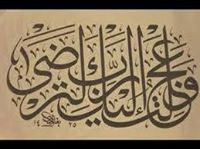 وعجلت إليك رب لترضى